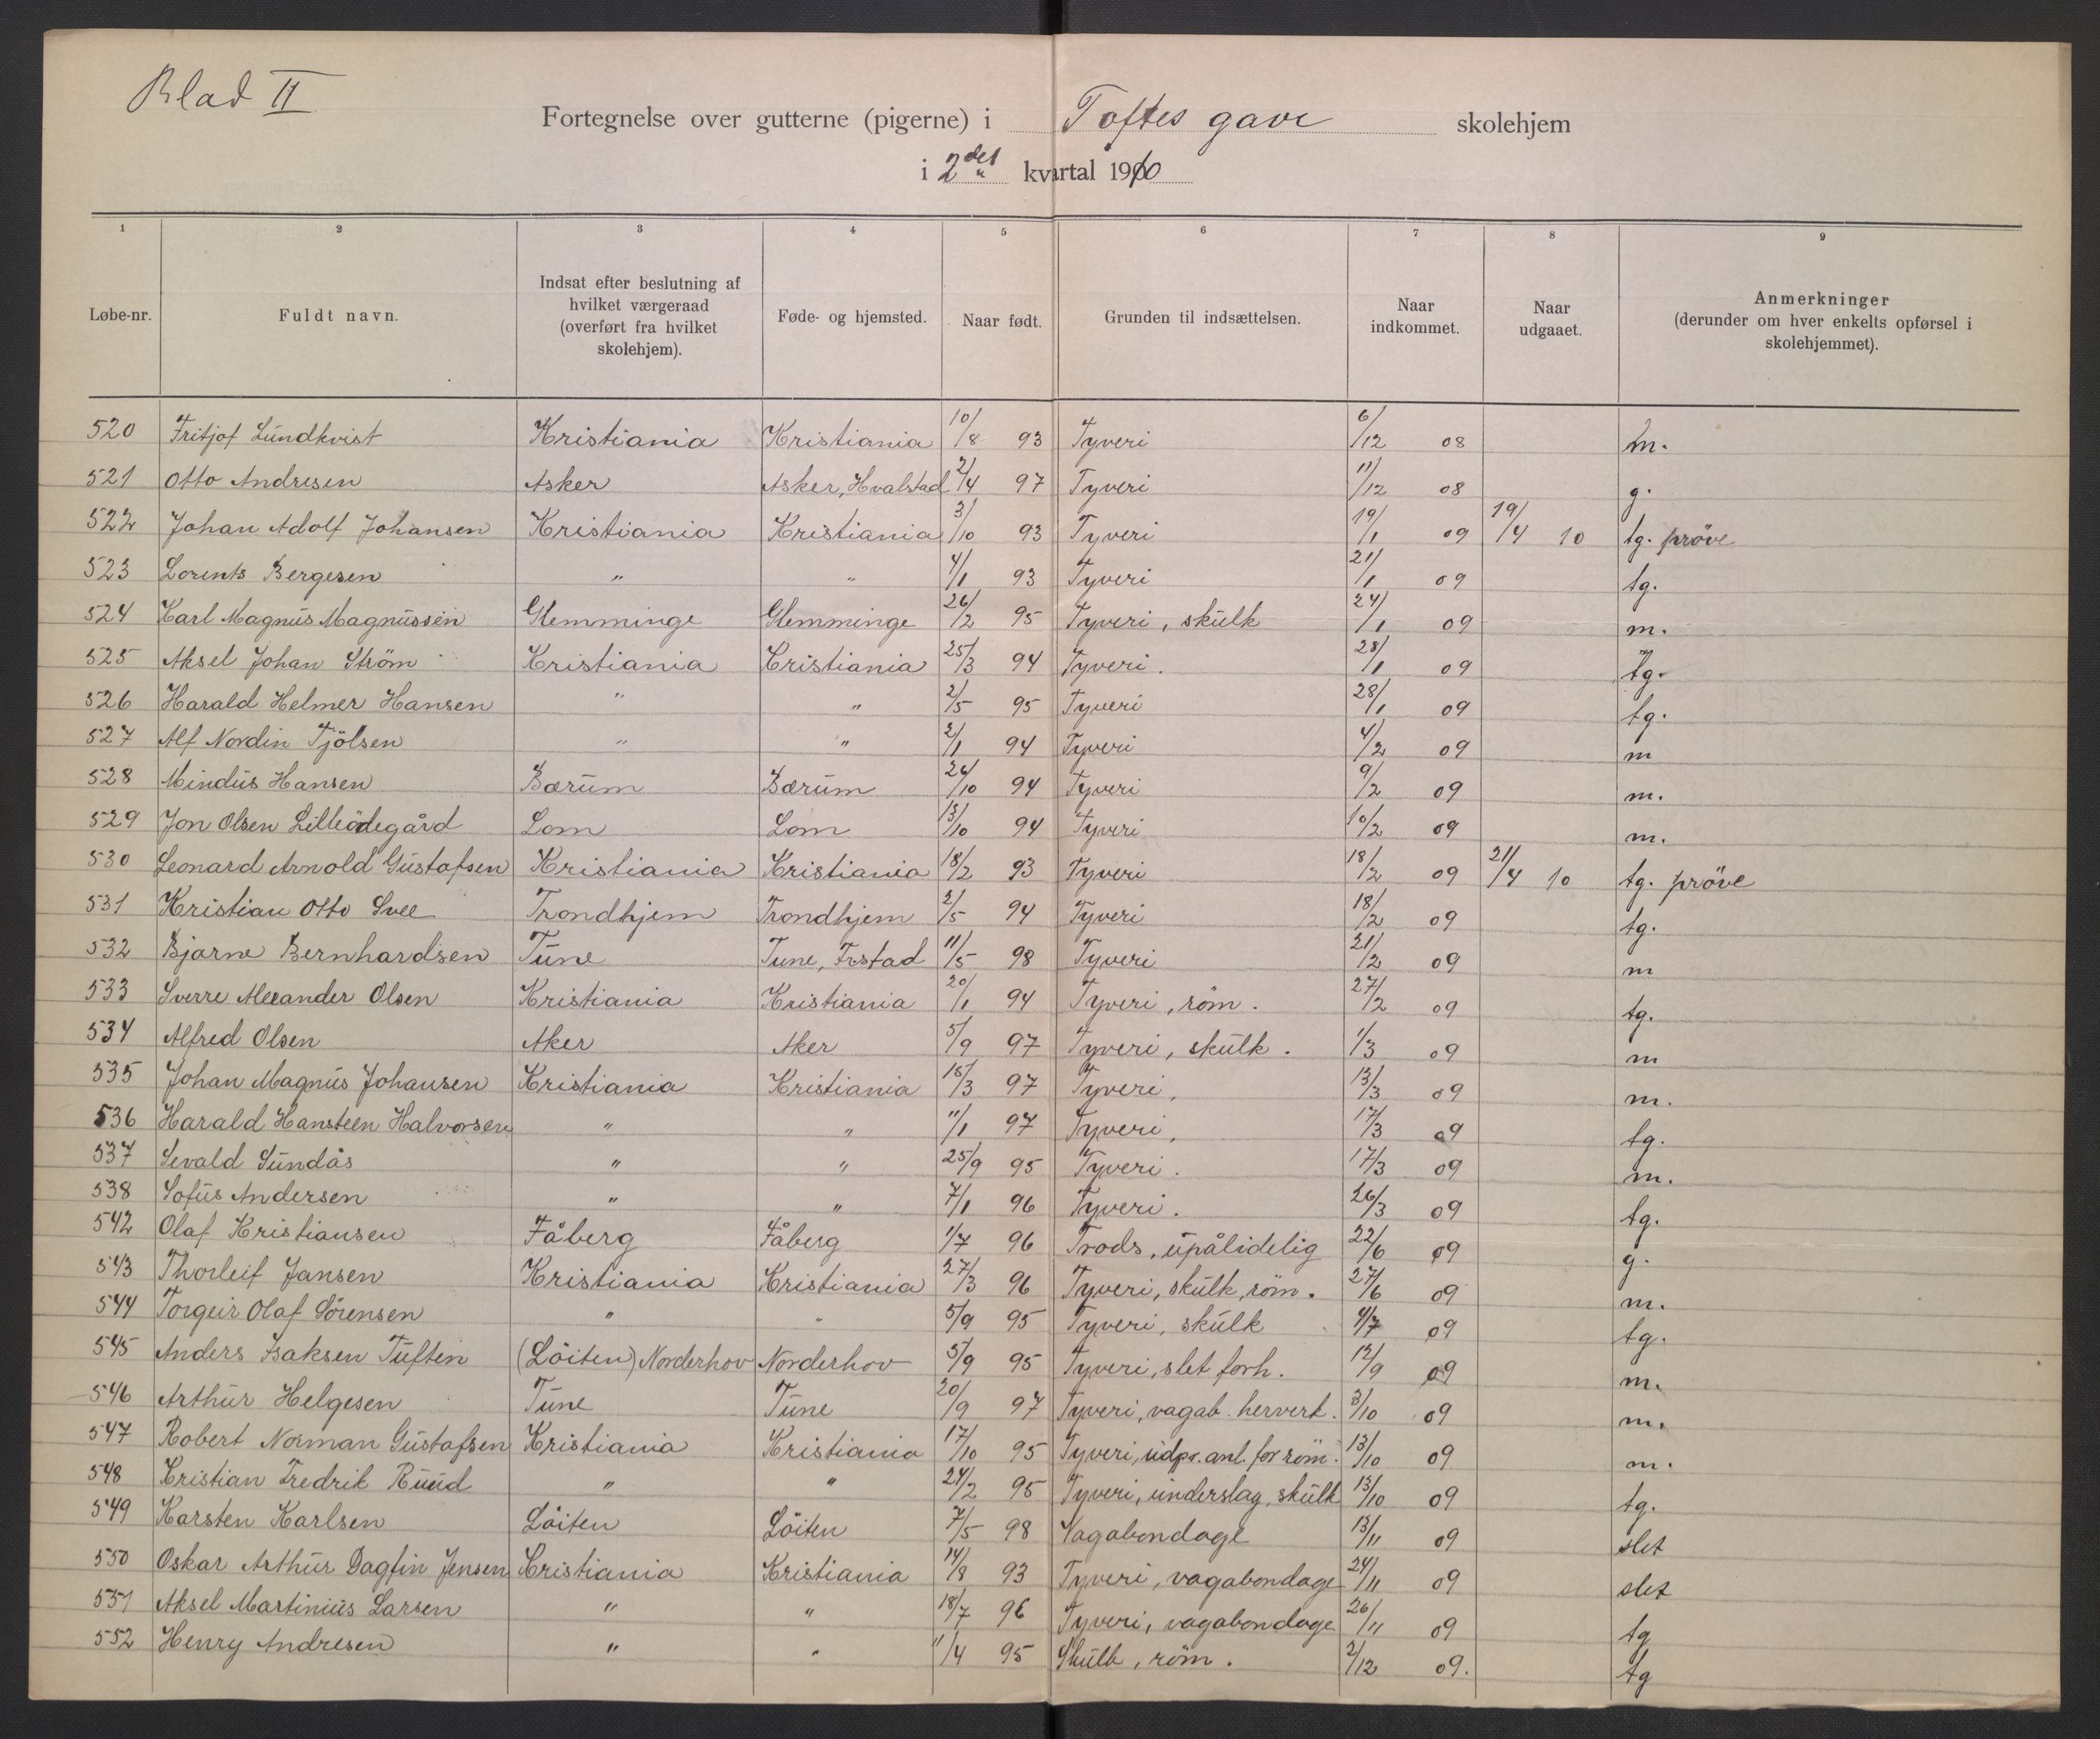 Blad II
Fortegnelse over gutterne (pigerne) i Toftes gave skolehjem
i 2det kvartal 1910
1 2 3 4 5 6 7 8 9
Løbe-nr. Fuldt navn. Indsat efter beslutning af hvilket værgeraad (overført fra hvilket skolehjem). Føde- og hjemsted. Naar født. Grunden til indsættelsen. Naar indkommet. Naar udgaaet. Anmerkninger (derunder om hver enkelts opførsel i skolehjemmet).
520 Fritjof Lundkvist Kristiania Kristiania 10/8 93 Tyveri 6/12 08 m.
521 Otto Andresen Asker Asker, Hvalstad 2/4 97 Tyveri 11/12 08 g.
522 Johan Adolf Johansen Kristiania Kristiania 3/10 93 Tyveri 19/1 09 19/4 10 tg. pröve
523 Lorents Bergesen " " 4/1 93 Tyveri 21/1 09 tg.
524 Karl Magnus Magnussen Glemminge Glemminge 26/2 95 Tyveri, skulk 24/1 09 m.
525 Aksel Johan Ström Kristiania Kristiania 25/3 94 Tyveri. 28/1 09 tg.
526 Harald Helmer Hansen " " 2/5 95 Tyveri 28/1 09 tg.
527 Alf Nordin Tjölsen " " 2/1 94 Tyveri 4/2 09 m
528 Mindus Hansen Bærum Bærum 26/10 94 Tyveri 9/2 09 m.
529 Jon Olsen Lilleödegård Lom Lom 13/10 94 Tyveri 10/2 09 m.
530 Leonard Arnold Gustafsen Kristiania Kristiania 18/2 93 Tyveri 18/2 09 21/4 10 tg. pröve
531 Kristian Otto Svee Trondhjem Trondhjem 2/5 94 Tyveri 18/2 09 tg.
532 Bjarne Bernhardsen Tune Tune, Frstad 11/5 98 Tyveri 21/2 09 m
533 Sverre Alexander Olsen Kristiania Kristiania 20/1 94 Tyveri, röm. 27/2 09 tg.
534 Alfred Olsen Aker Aker 5/9 97 Tyveri, skulk. 1/3 09 m
535 Johan Magnus Johansen Kristiania Kristiania 18/3 97 Tyveri, 13/3 09 m.
536 Harald Hansteen Halvorsen " " 11/1 97 Tyveri, 17/3 09 tg.
537 Sevald Sundås " " 25/9 95 Tyveri. 17/3 09 m.
538 Sofus Andersen " " 7/1 96 Tyveri. 26/3 09 tg.
542 Olaf Kristiansen Fåberg Fåberg 1/7 96 Trods, upålidelig 22/6 09 g.
543 Thorleif Jansen Kristiania Kristiania 27/3 96 Tyveri, skulk, röm. 27/6 09 m.
544 Torgeir Olaf Sörensen " " 5/9 95 Tyveri, skulk 4/7 09 tg.
545 Anders Isaksen Tuften (Löiten) Norderhov Norderhov 5/9 95 Tyveri, slet forh. 12/9 09 m.
546 Arthur Helgesen Tune Tune 20/9 97 Tyveri, vagab. herverk. 3/10 09 m.
547 Robert Norman Gustafsen Kristiania Kristiania 17/10 95 Tyveri, udpr. anl. for röm. 13/10 09 m.
548 Kristian Fredrik Ruud " " 24/2 95 Tyveri, underslag, skulk 13/10 09 tg.
549 Karsten Karlsen Löiten Löiten 7/5 98 Vagabondage 13/11 09 slet
550 Oskar Arthur Dagfin Jensen Kristiania Kristiania 14/8 93 Tyveri, vagabondage 24/11 09 slet
551 Aksel Martinius Larsen " " 18/7 96 Tyveri, vagabondage 26/11 09 tg
552 Henry Andresen " " 11/4 95 Skulk, röm. 2/12 09. tg